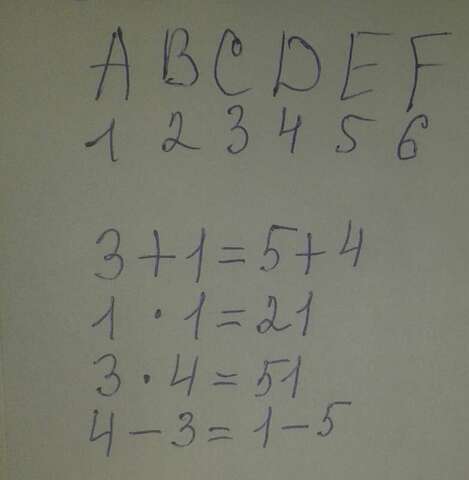 A B C D E F
1 2 3 4 5 6
3+1=5+4
1·1=21
3·4=51
4-3=1-5